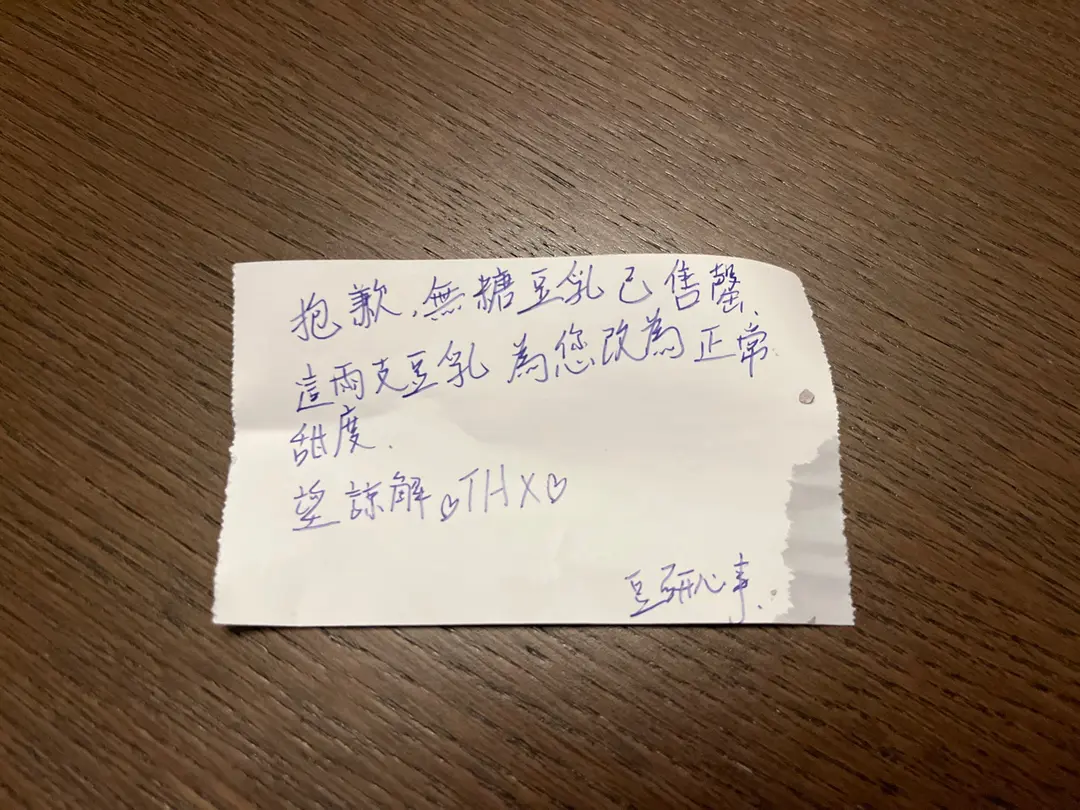 抱歉,無糖豆乳已售罄.
這兩支豆乳為您改為正常
甜度.
望諒解♡THX♡
豆研心事.